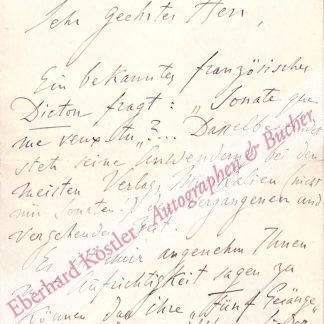 Sehr geehrter Herr,
Ein bekannter französischer
Dicton fragt: „Sonate que
me veux-tu"?... Dasselbe
steh seine Anwendung bei den
meisten Verlag, Musikalien (nicht
nur Sonaten
vergangenen und
vergehenden Zeit.
Es mir angenehm Ihnen
Aufrichtigkeit sagen zu
können das ihre „Fünf Gesänge"
Eberhard Köstler - Autographen & Bücher,